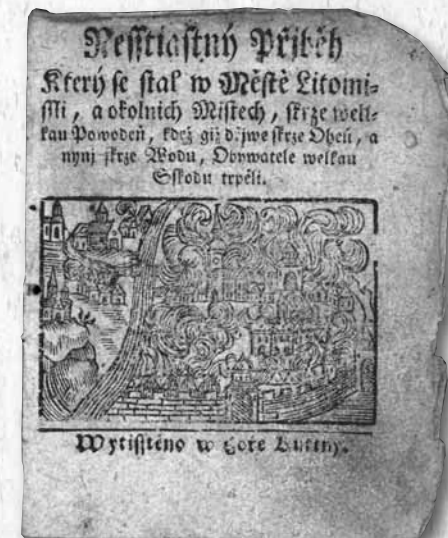 Nesstiastný Přjběh
Který se stal w Městě Litomi-
ssli, a okolnich Mistech, skrze well-
kau Powodeň, kdež giž dřjwe skrze Oheň, a
nynj skrze Wodu, Obywatele welkau
Sskodu trpěli.
Wytisstěno w Hoře Kuttny.